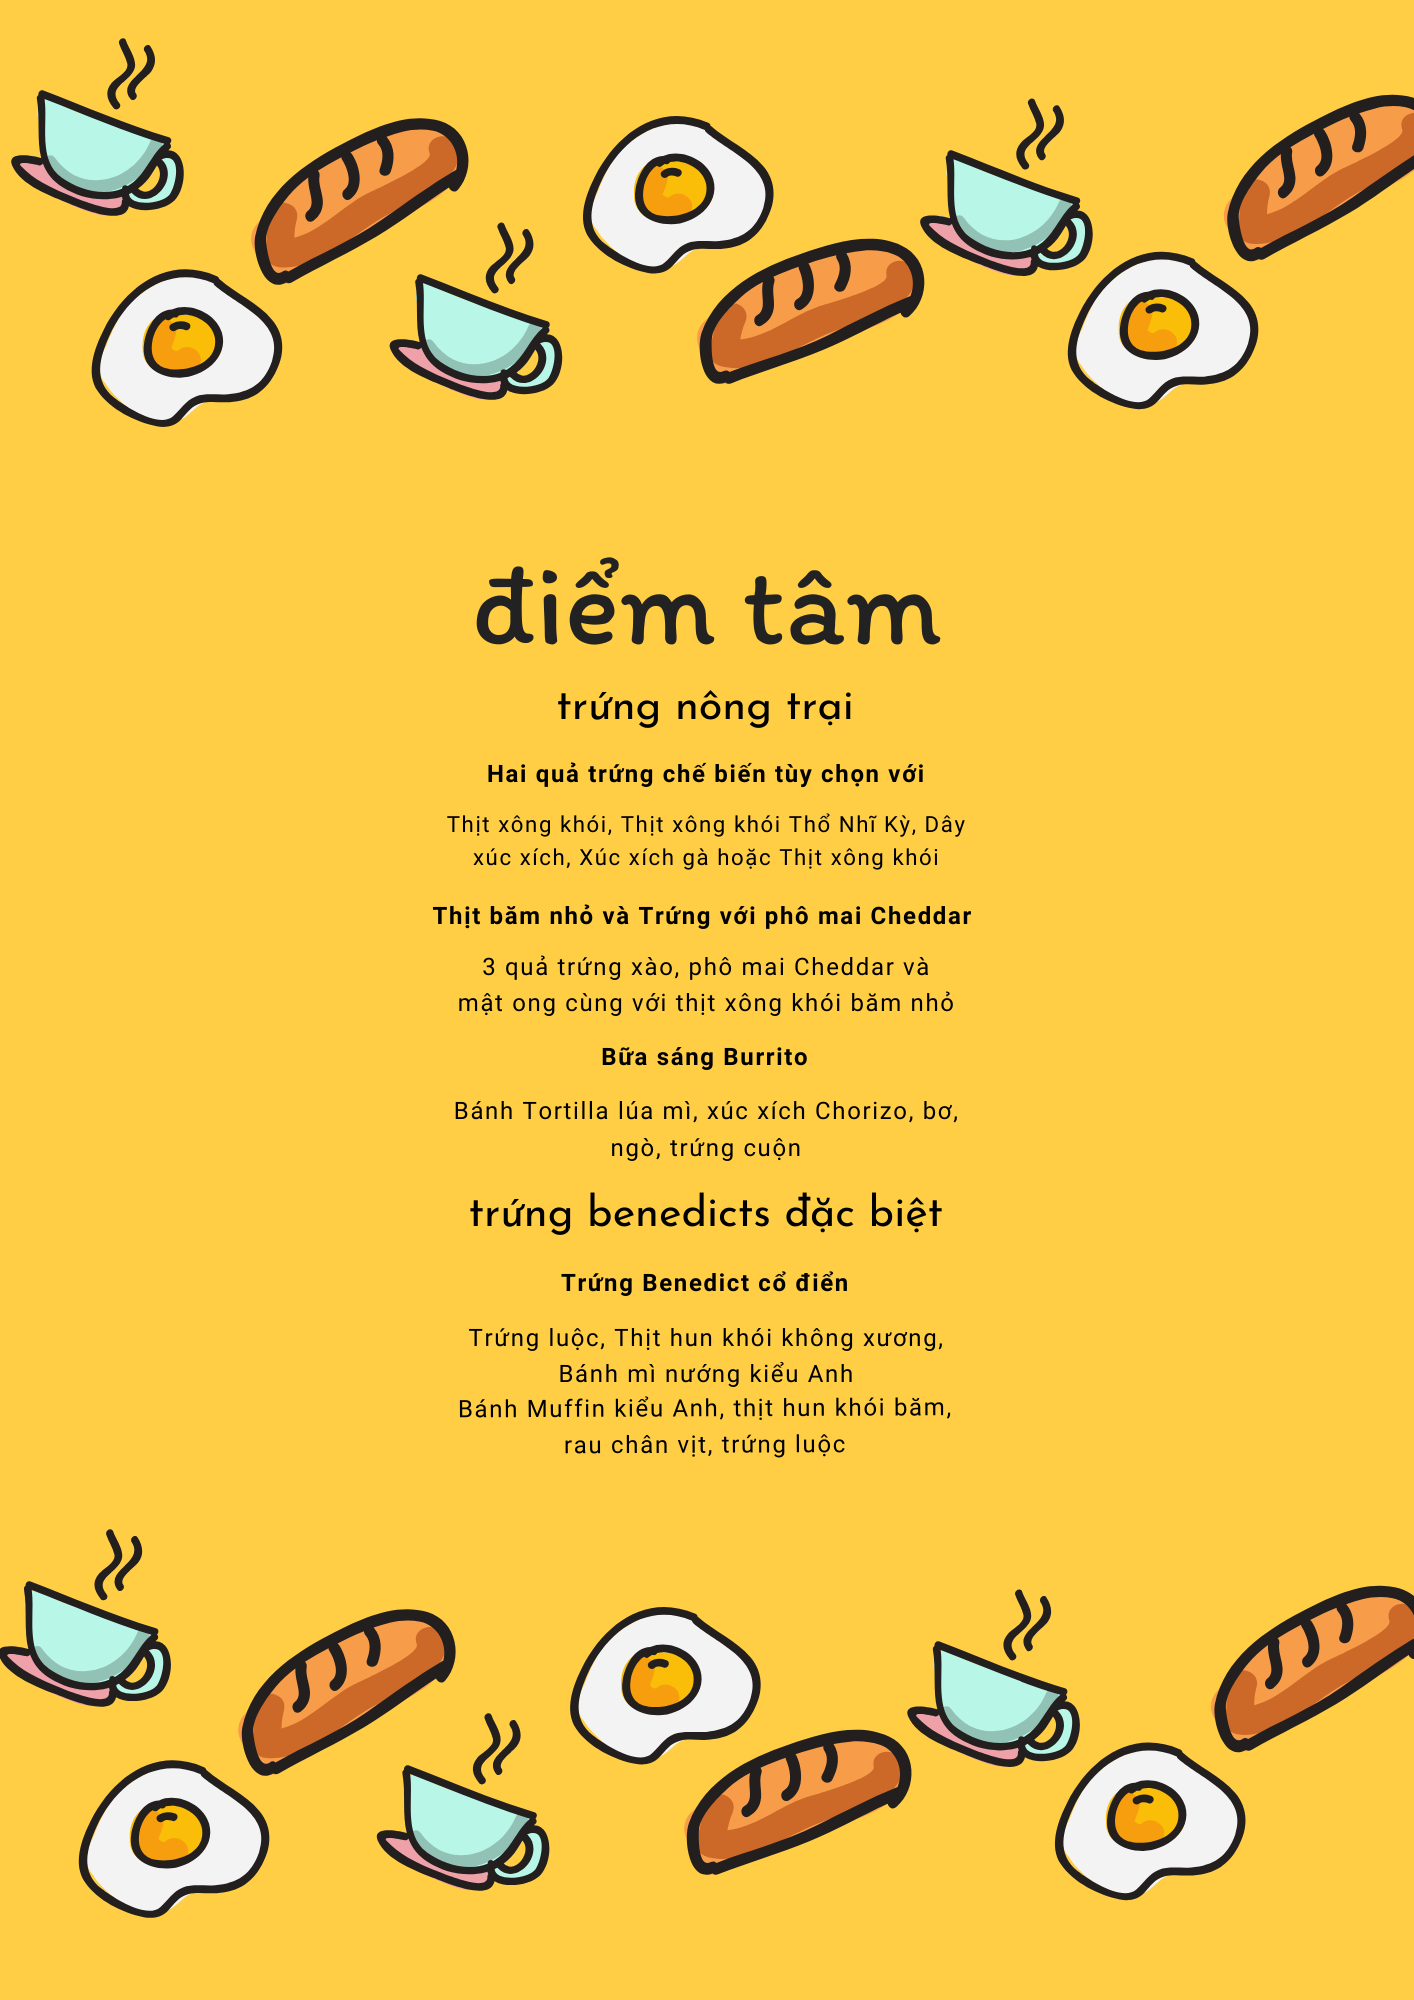 điểm tâm
trứng nông trại
Hai quả trứng chế biến tùy chọn với
Thịt xông khói, Thịt xông khói Thổ Nhĩ Kỳ, Dây
xúc xích, Xúc xích gà hoặc Thịt xông khói
Thịt băm nhỏ và Trứng với phô mai Cheddar
3 quả trứng xào, phô mai Cheddar và
mật ong cùng với thịt xông khói băm nhỏ
Bữa sáng Burrito
Bánh Tortilla lúa mì, xúc xích Chorizo, bơ,
ngò, trứng cuộn
trứng benedicts đặc biệt
Trứng Benedict cổ điển
Trứng luộc, Thịt hun khói không xương,
Bánh mì nướng kiểu Anh
Bánh Muffin kiểu Anh, thịt hun khói băm,
rau chân vịt, trứng luộc